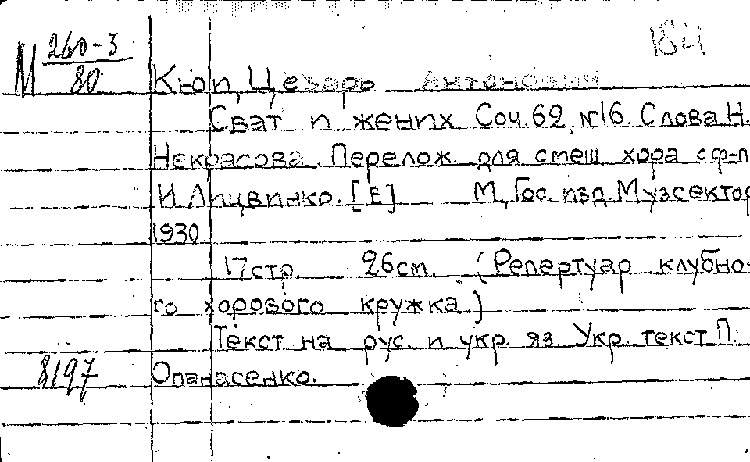 184
М 260-3
80
Кюи, Цезарь Антонович
Сват и жених Соч. 62, №16 Слова Н.
Некрасова. Перелож. для смеш. хора с ф-п
И. Лицвинко. [Е] М, Гос. изд. Музсектор
1930
17 стр. 26 см. (Репертуар клубно-
го хорового кружка.)
Текст на рус. и укр. яз. Укр. текст П.
8197 Опанасенко.